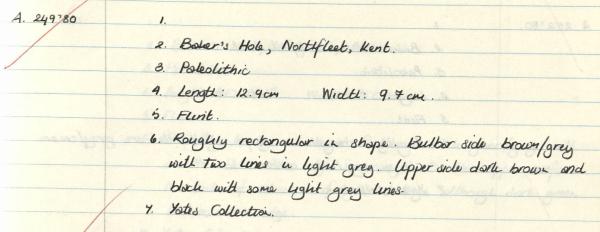 A. 249'80
1.
2. Baker's Hole, Northfleet, Kent.
3. Paleolithic
4. Length: 12.9cm Width: 9.7cm.
5. Flint.
6. Roughly rectangular in shape. Bulbar side brown/grey
with two lines in light grey. Upper side dark brown and
black with some light grey lines.
7. Yates Collection.